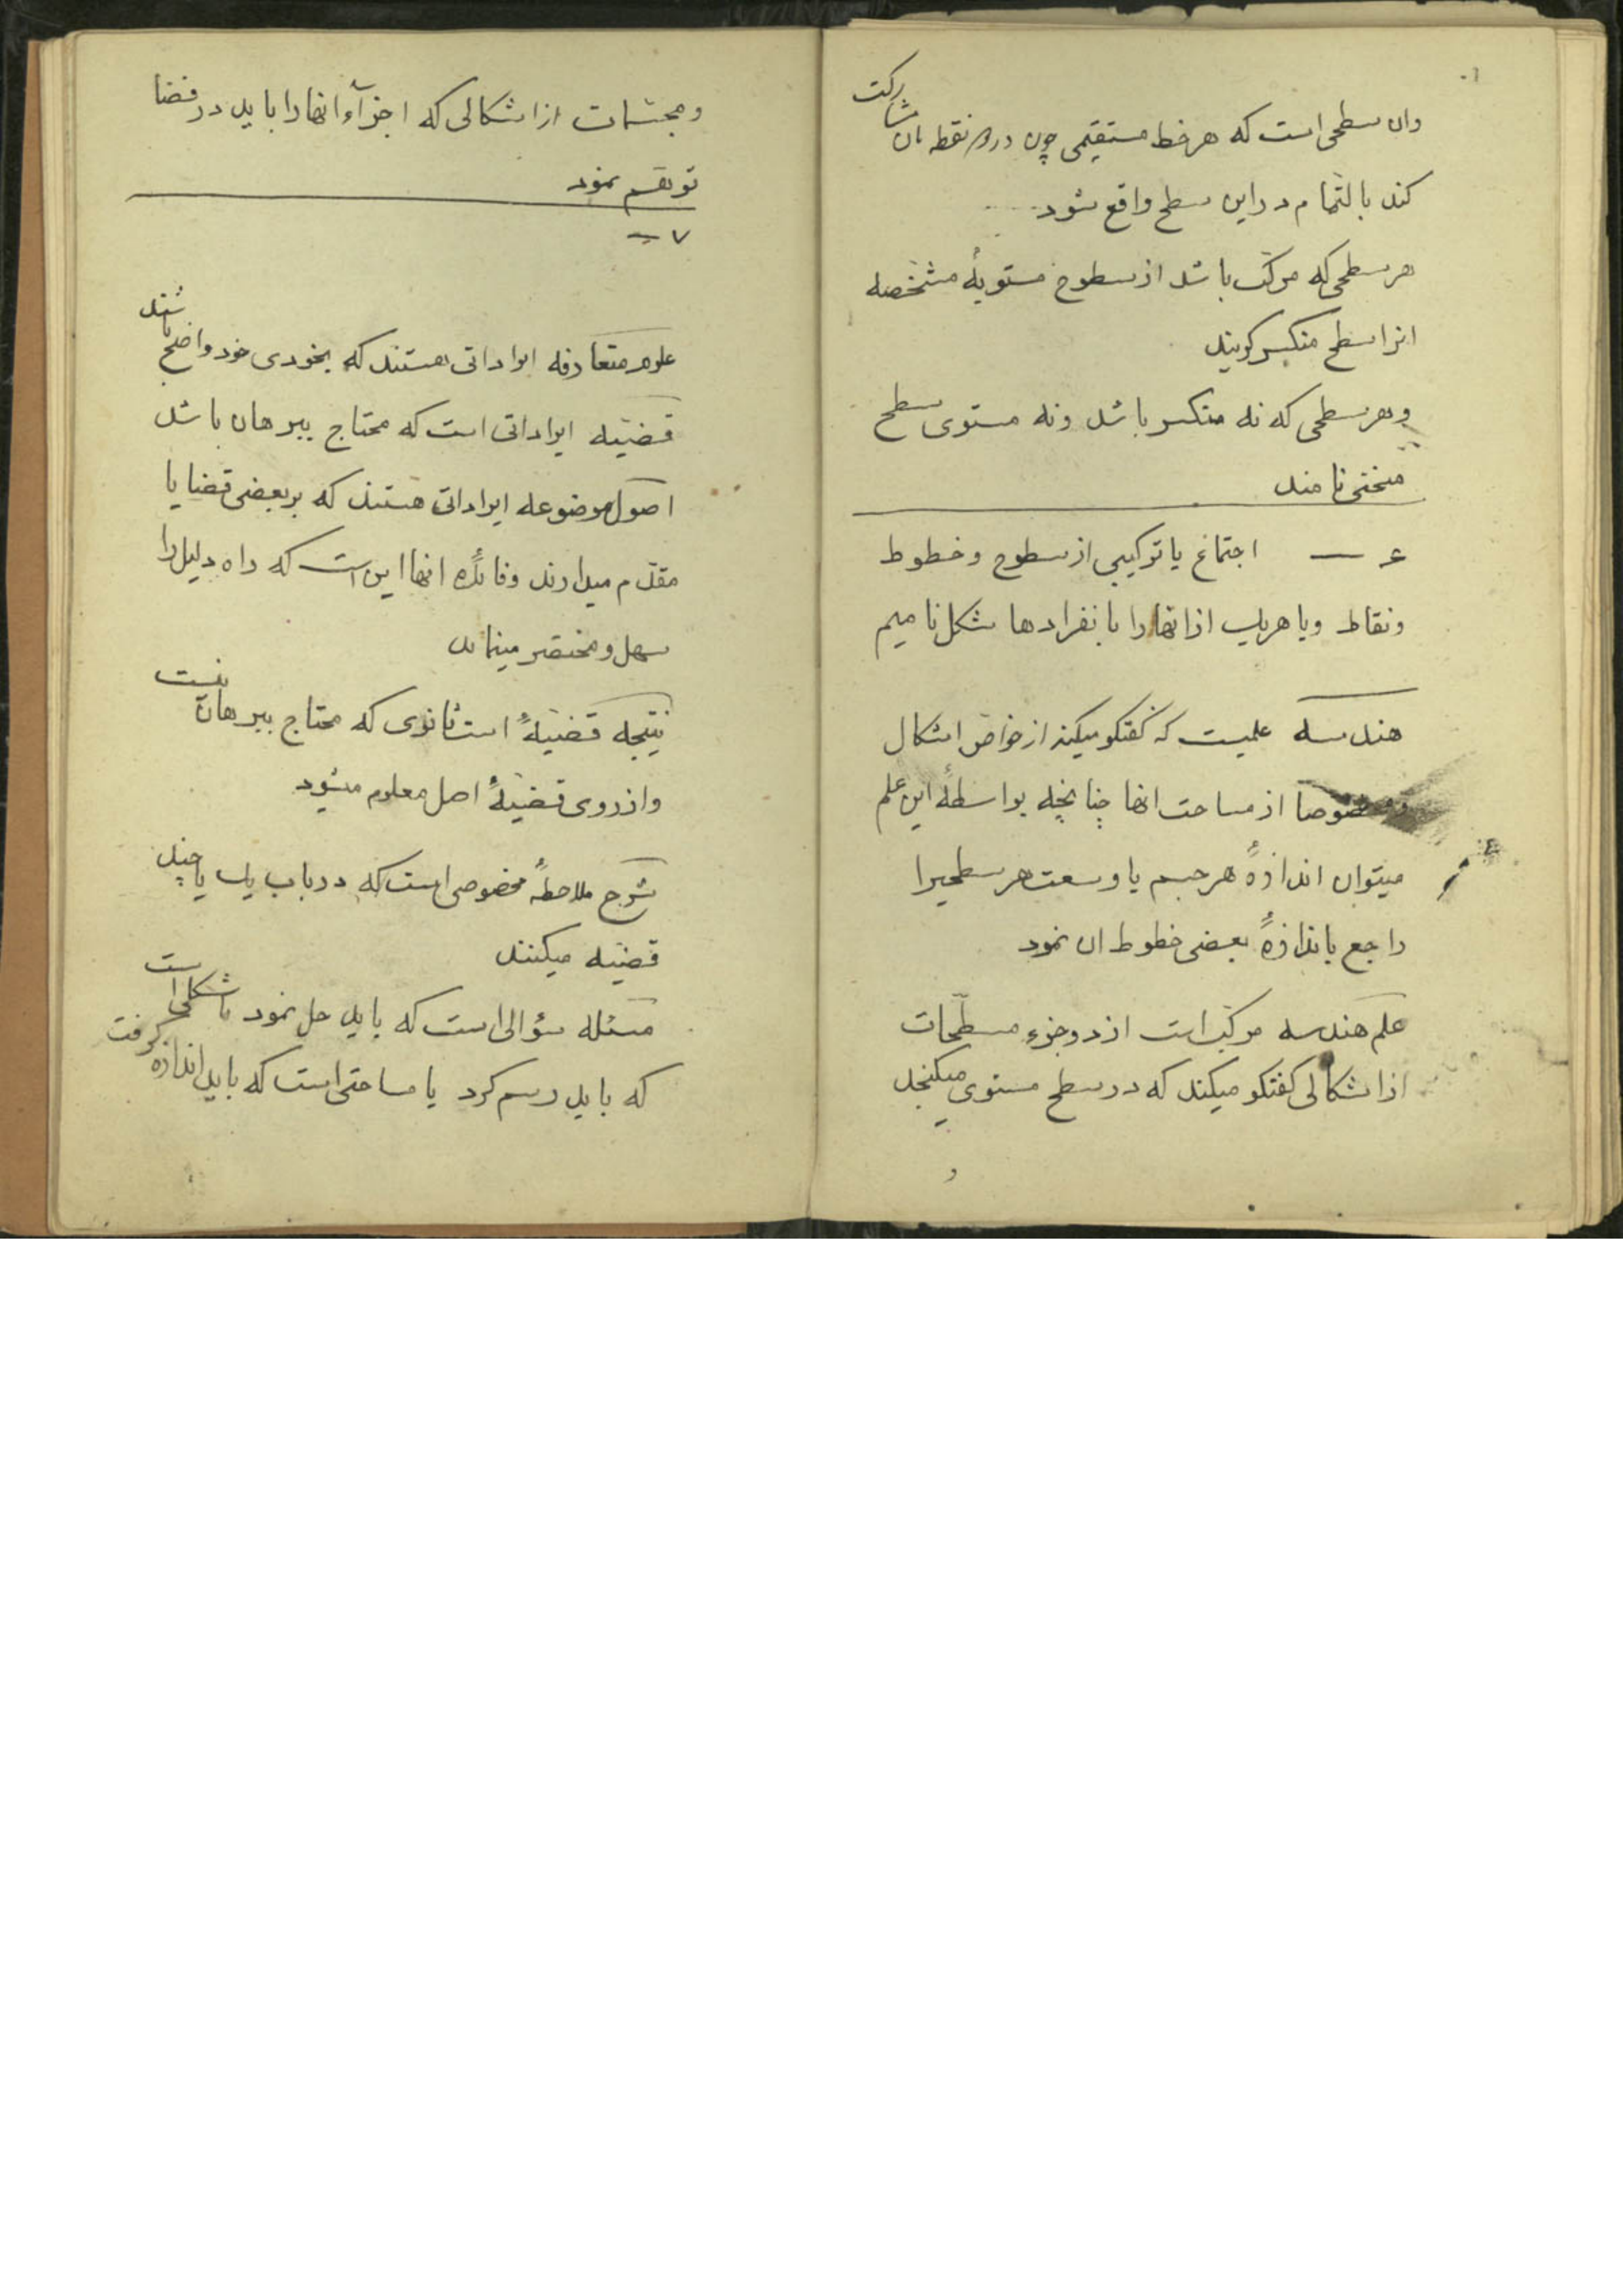 وان سطحی است که هر خط مستقیمی چون در دو نقطه بان مشارکت
کند بالتمام در این سطح واقع شود
هر سطحی که مرکب باشد از سطوح مستویهٔ مشخصه
انرا سطح منکسر کویند
و هر سطحی که نه منکسر باشد ونه مستوی سطح
منحنی نامند
۶ — اجتماع یا ترکیبی از سطوح وخطوط
ونقاط ویا هریک از انها را بانفرادها شکل نامیم
هندسه علمیست که کفتکو میکند از خواص اشکال
ومخصوصا از مساحت انها چنانچه بواسطهٔ این علم
میتوان اندازهٔ هر جسم یا وسعت هر سطحیرا
راجع باندازهٔ بعضی خطوط ان نمود
علم هندسه مرکب است از دو جزء مسطّحات
از اشکالی کفتکو میکند که در سطح مستوی میکنجد
و
ومجسّمات از اشکالی که اجزآء انها را باید در فضا
توهّم نمود
۷ —
علوم متعارفه ایراداتی هستند که بخودی خود واضح باشند
قضیّه ایراداتی است که محتاج ببرهان باشد
اصول موضوعه ایراداتی هستند که بر بعضی قضایا
مقدّم میدارند وفائدهٔ انها این است که راه دلیل را
سهل ومختصر مینماید
نتیجه قضیّهٔ است ثانوی که محتاج ببرهان نیست
واز روی قضیّهٔ اصل معلوم میشود
شرح ملاحظهٔ مخصوصی است که در باب یک یا چند
قضیّه میکنند
مسئله سؤالی است که باید حل نمود یا شکلی است
که باید رسم کرد یا مساحتی است که باید اندازه کرفت